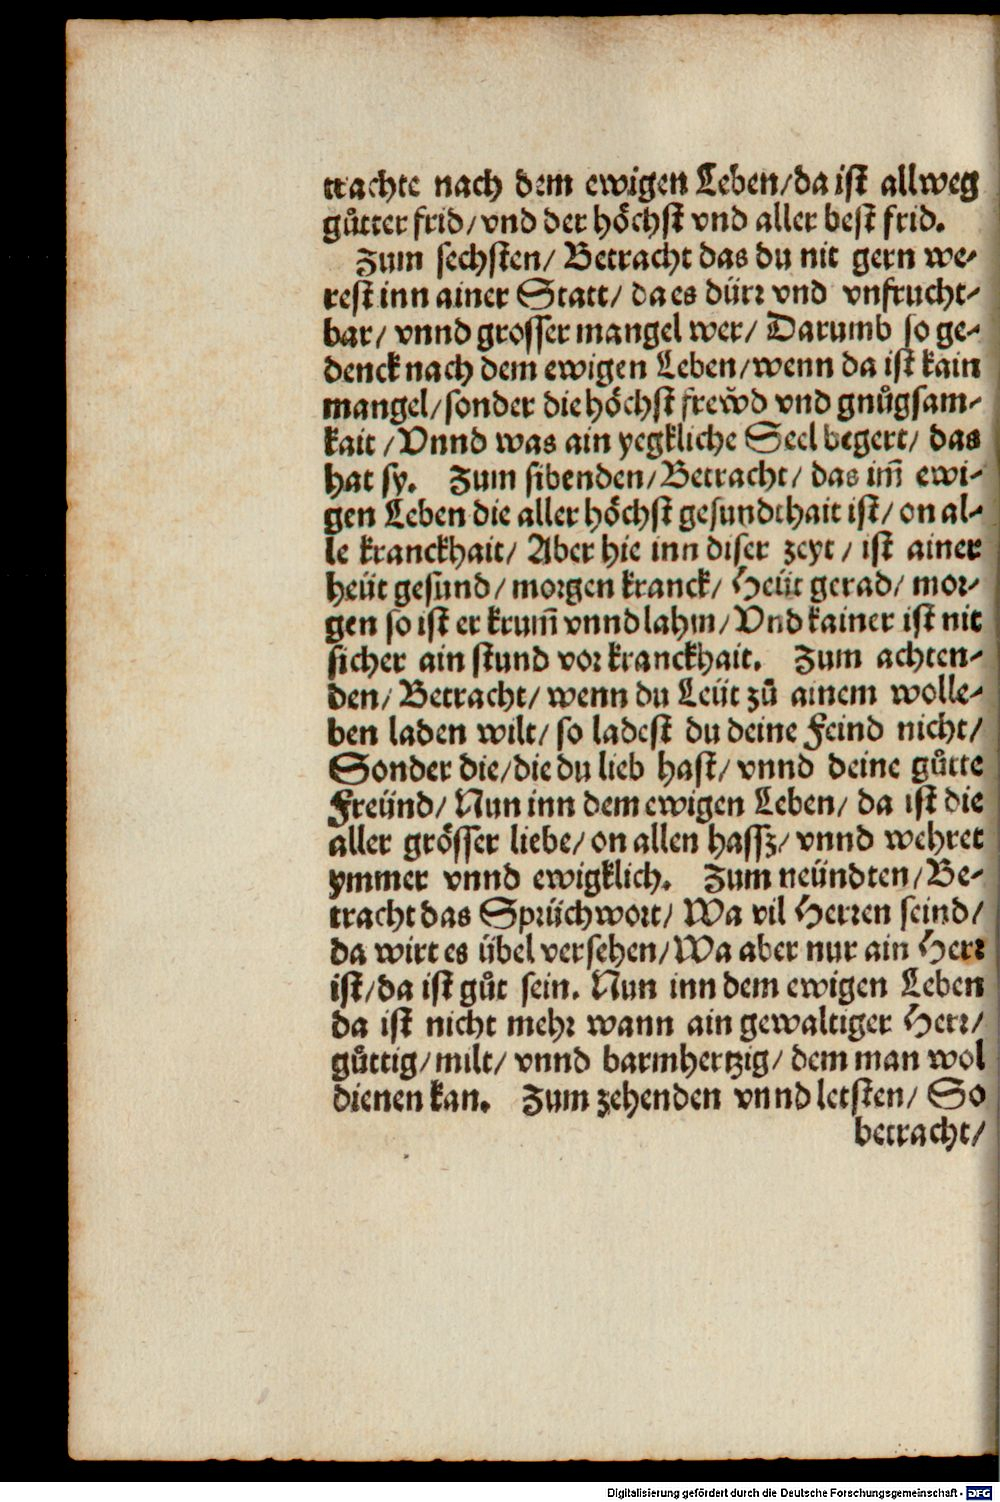 trachte nach dem ewigen Leben/da ist allweg
gůtter frid/vnd der höchst vnd aller best frid.
Zum sechsten/ Betracht das du nit gern we-
rest inn ainer Statt/ da es dürr vnd vnfrucht-
bar/ vnnd grosser mangel wer/ Darumb so ge-
denck nach dem ewigen Leben/wenn da ist kain
mangel/sonder die höchst frewd vnd gnůgsam-
kait/Vnnd was ain yegkliche Seel begert/ das
hat sy. Zum sibenden/Betracht/ das im̃ ewi-
gen Leben die aller höchst gesundthait ist/ on al-
le kranckhait/ Aber hie inn diser zeyt/ ist ainer
heüt gesund/ morgen kranck/ Heüt gerad/ mor-
gen so ist er krum̃ vnnd lahm/Vnd kainer ist nit
sicher ain stund vor kranckhait. Zum achten-
den/ Betracht/ wenn du Leüt zů ainem wolle-
ben laden wilt/ so ladest du deine Feind nicht/
Sonder die/die du lieb hast/ vnnd deine gůtte
Freünd/ Nun inn dem ewigen Leben/ da ist die
aller grösser liebe/ on allen hassz/ vnnd wehret
ymmer vnnd ewigklich. Zum neündten/Be-
tracht das Sprüchwort/ Wa vil Herren seind/
da wirt es übel versehen/Wa aber nur ain Herr
ist/da ist gůt sein. Nun inn dem ewigen Leben
da ist nicht mehr wann ain gewaltiger Herr/
gůttig/milt/ vnnd barmhertzig/ dem man wol
dienen kan. Zum zehenden vnnd letsten/ So
betracht/
Digitalisierung gefördert durch die Deutsche Forschungsgemeinschaft - DFG